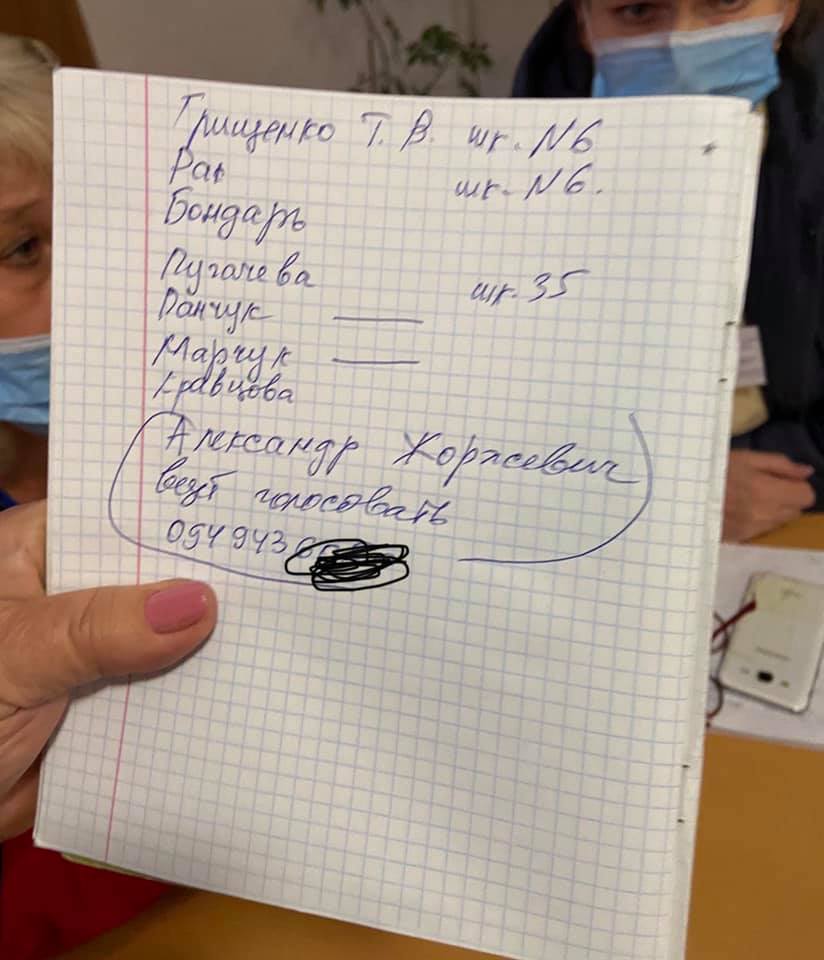 Грищенко Т. В. шк. N6
Рак шк. N6.
Бондарь
Пугачева шк. 35
Панчук ——
Марчук ——
Кравцова
Александр Жоржевич
везт голосовать
094 943